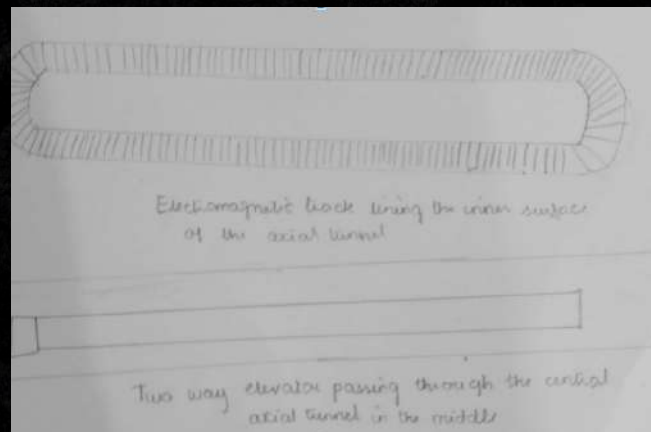 Electromagnetic track lining the inner surface
of the axial tunnel
Two way elevator passing through the central
axial tunnel in the middle